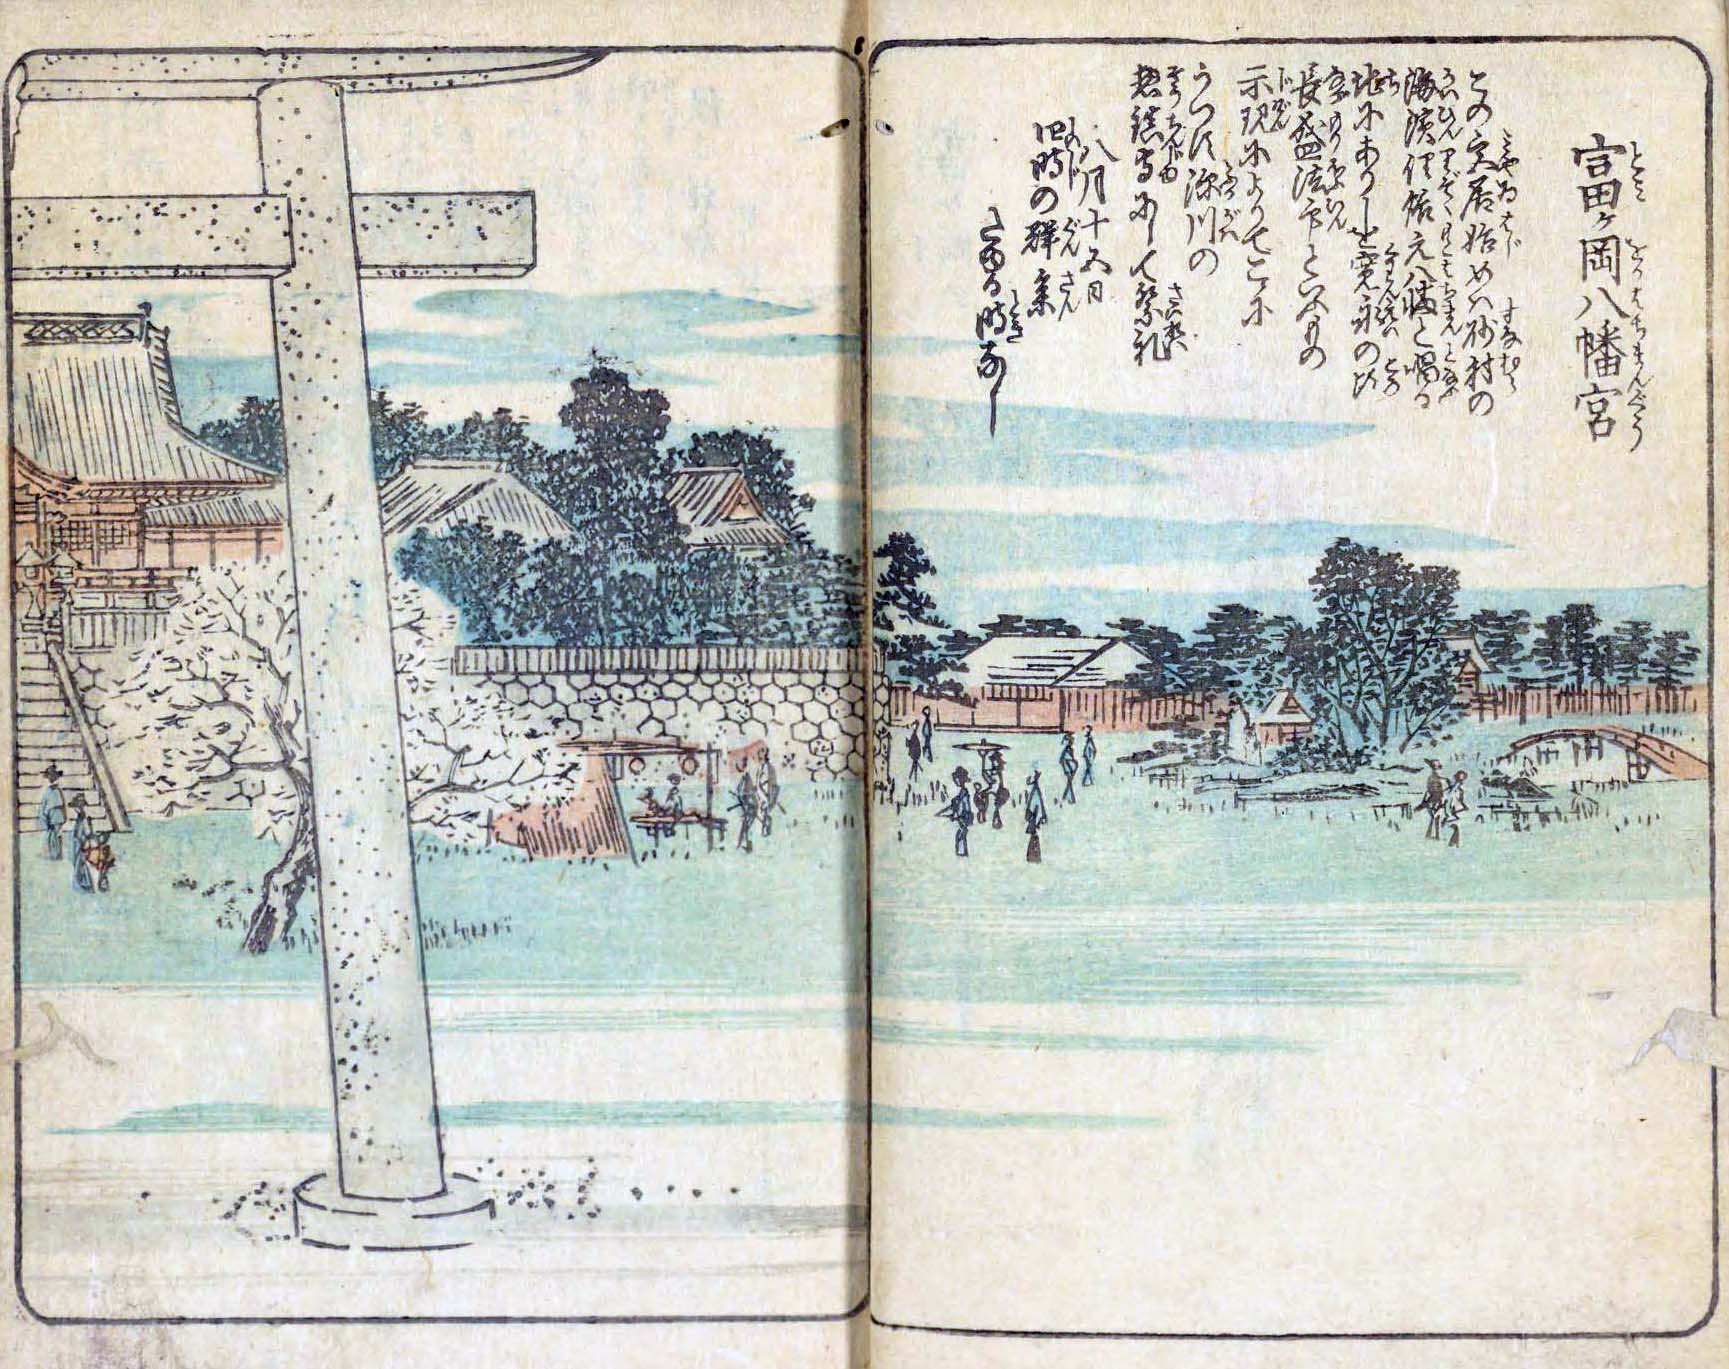 富ヶ岡八幡宮
この宮居始めハ砂村の
海濱俚俗元八幡と唱る
地にありしを寛永の頃
長盛法印といふもの
示現によりてこゝに
うつす深川の
惣鎮守にして祭礼
八月十五日
四時の群参
たゆる時なし